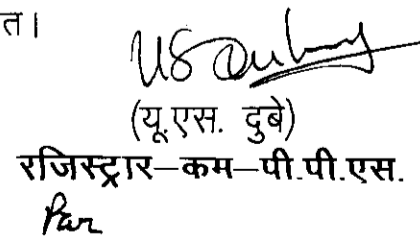 त।
US Dubey
(यू.एस. दुबे)
रजिस्ट्रार–कम–पी.पी.एस.